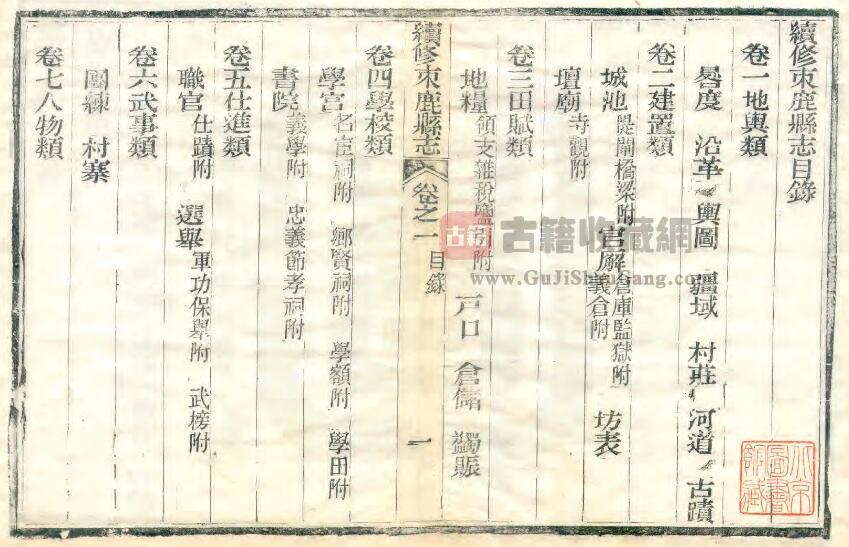 續修束鹿縣志目錄
卷一地輿類
晷度 沿革 輿圖 疆域 村莊 河道 古蹟
卷二建置類
城池 隄閘橋梁附 官廨 倉庫監獄附 義倉附 坊表
壇廟 寺觀附
卷三田賦類
地糧 領支雜稅鹽引附 戶口 倉儲 蠲賑
續修束鹿縣志 卷之一 目錄 一
卷四學校類
學宮 名宦祠附 鄉賢祠附 學額附 學田附
書院 義學附 忠義節孝祠附
卷五仕進類
職官 仕蹟附 選舉 軍功保舉附 武榜附
卷六武事類
團練 村寨
卷七人物類
古籍 古籍收藏網
www.GuJiShouCang.com